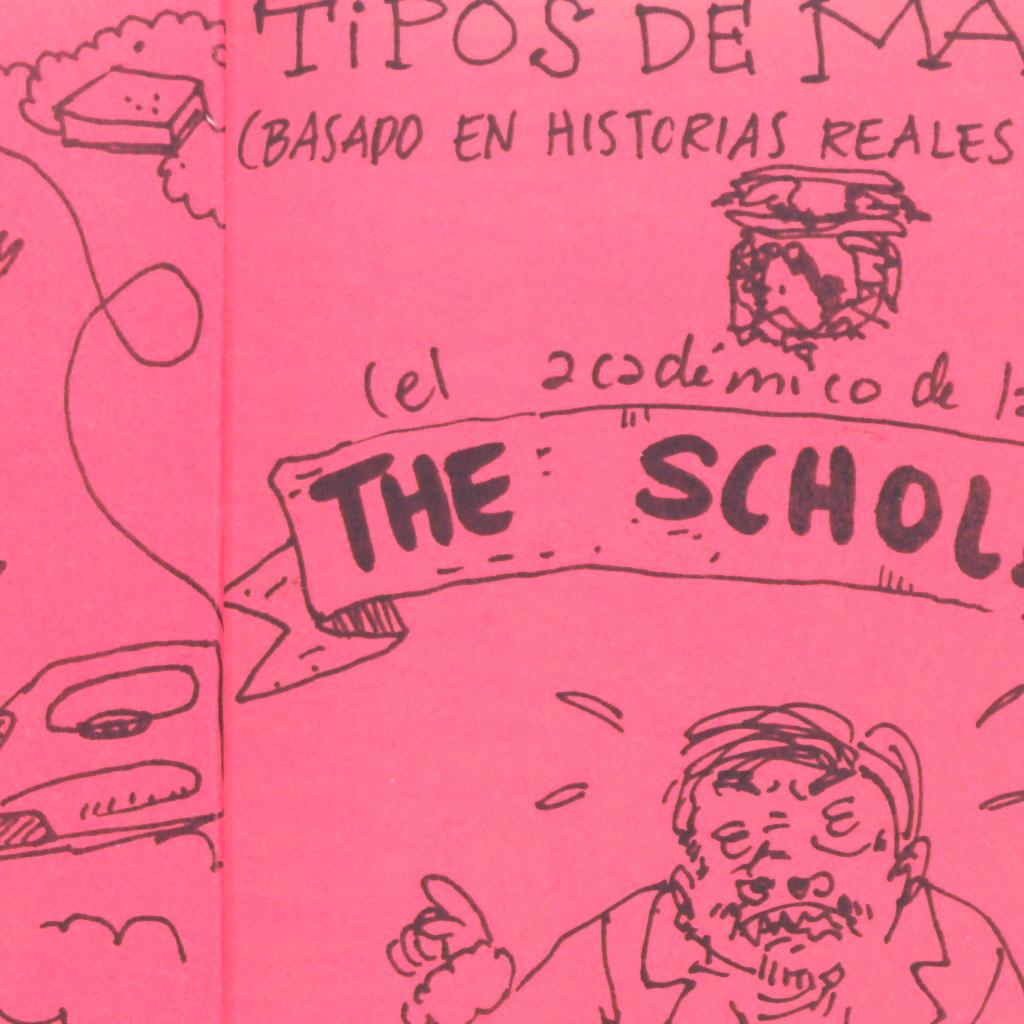 TiPOS DE MA
(BASADO EN HISTORIAS REALES
(el académico de la
THE SCHOL